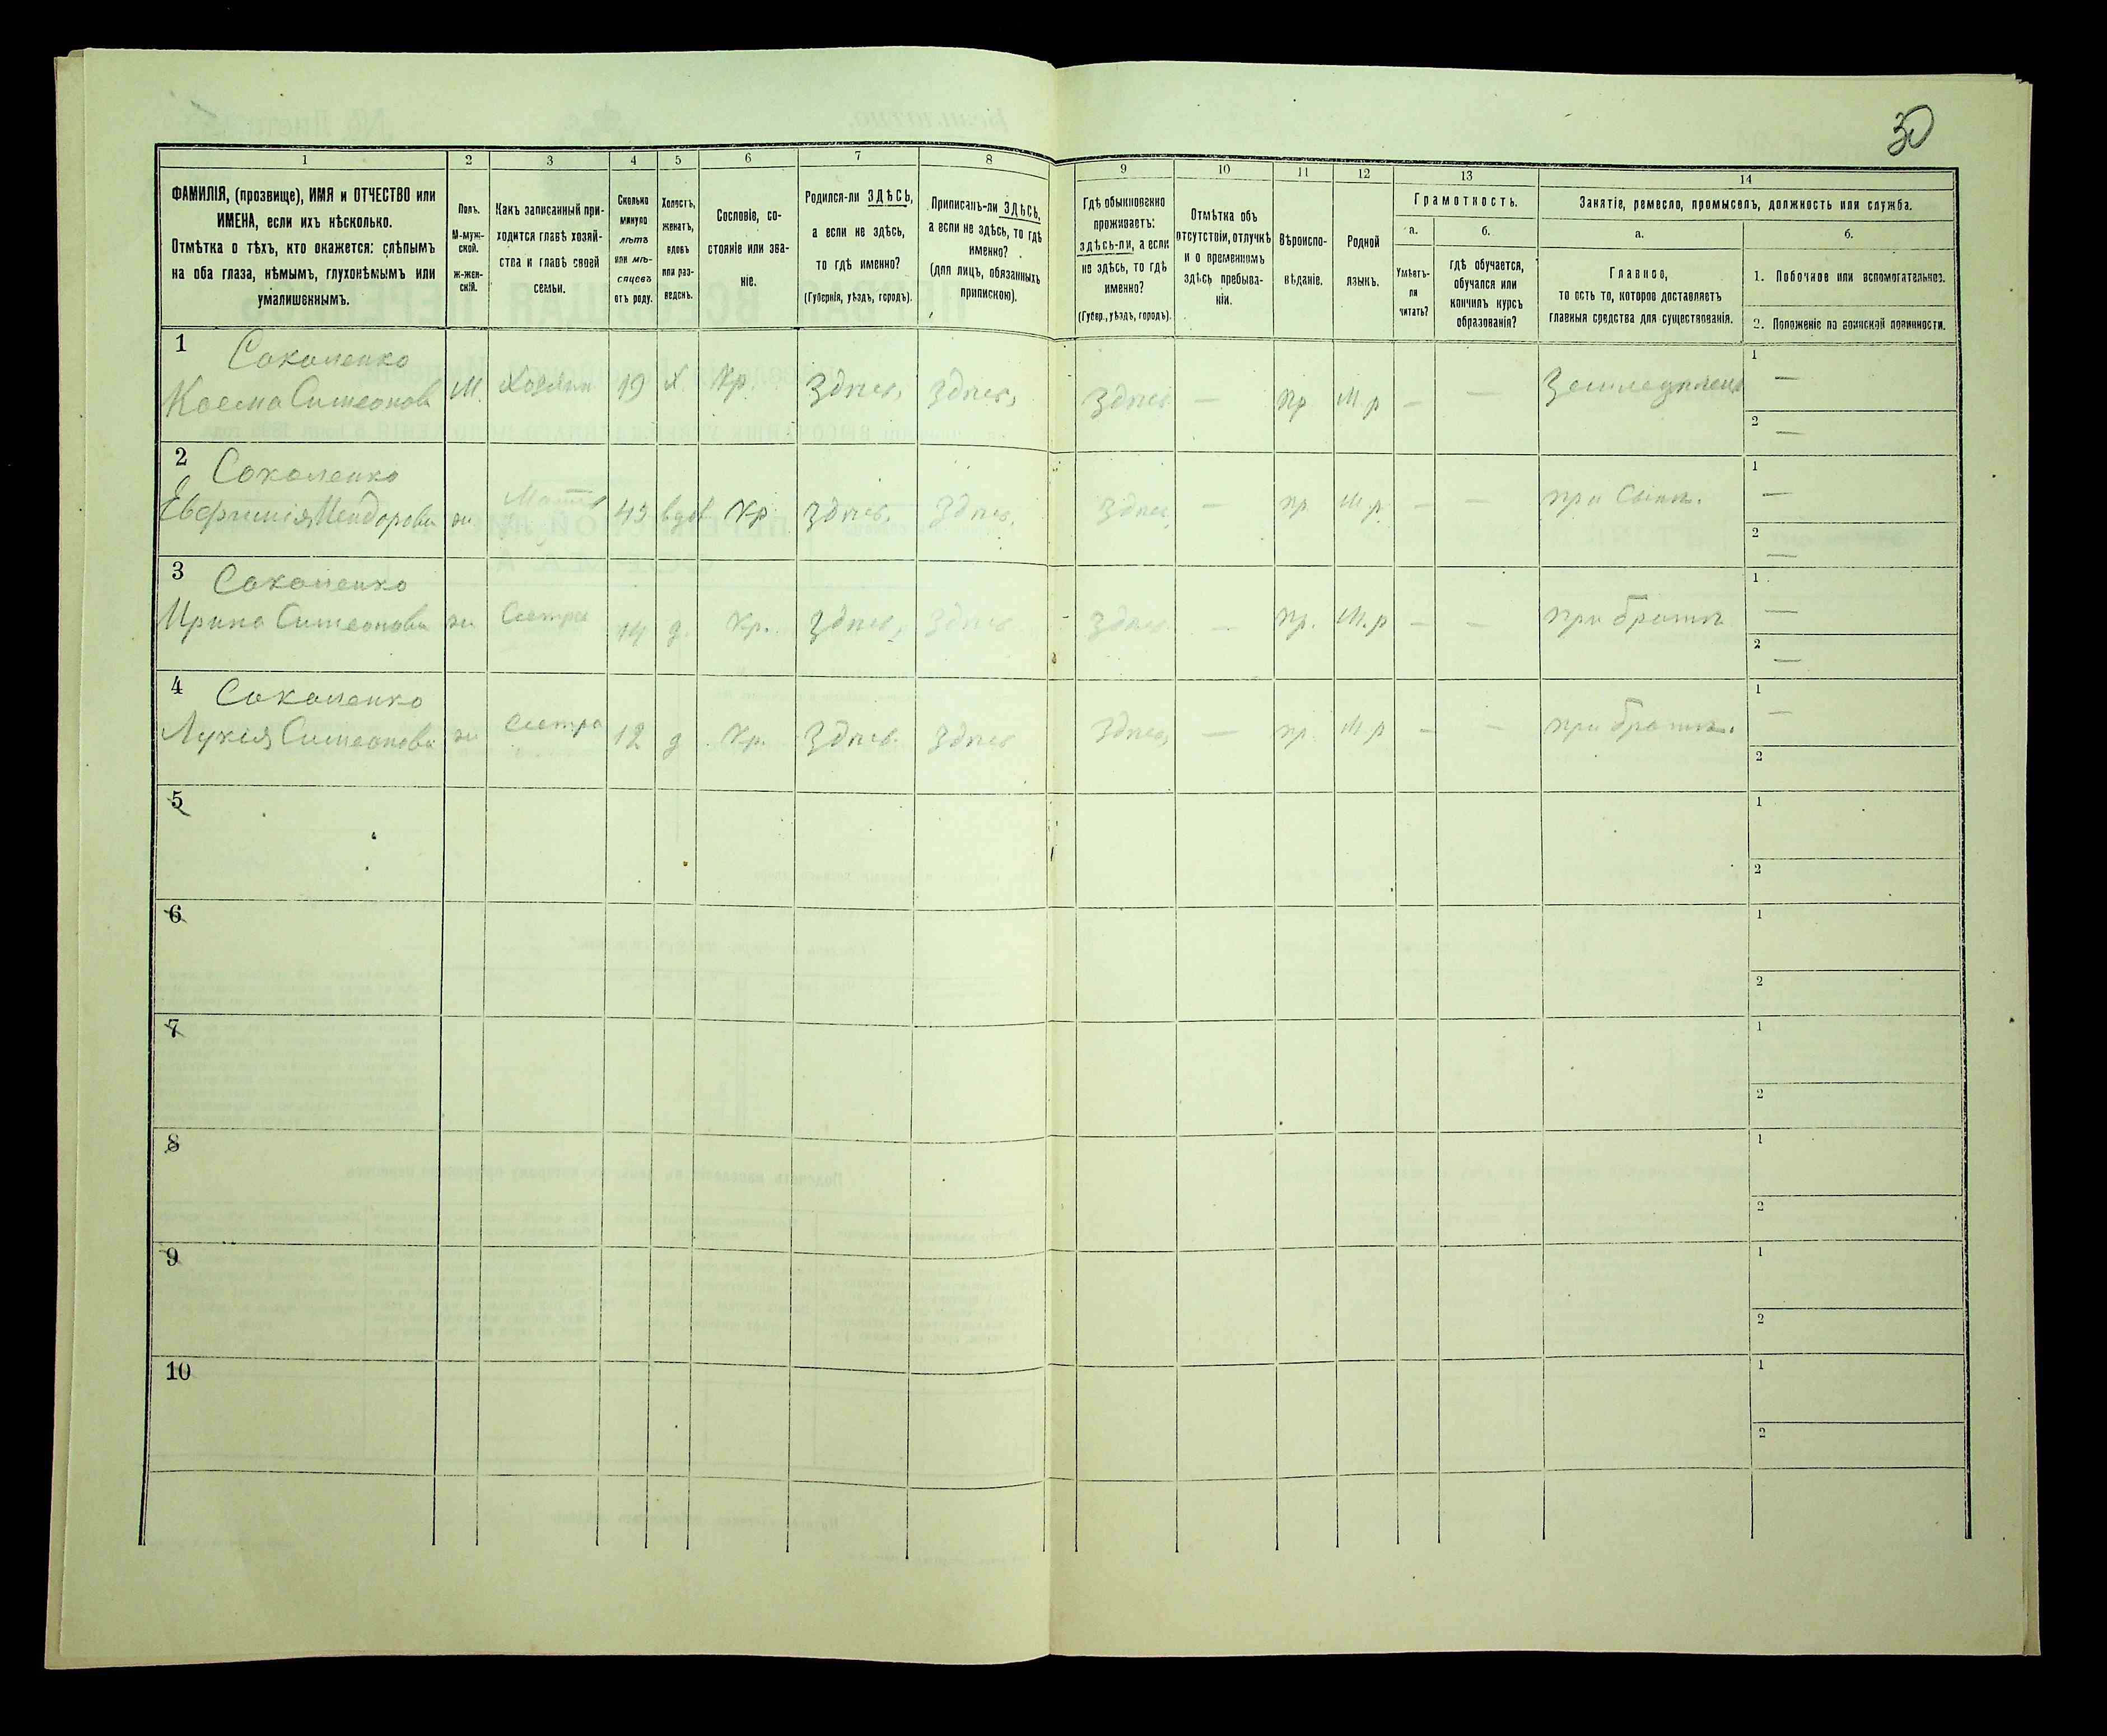 30
1 2 3 4 5 6 7 8 9 10 11 12 13 14
ФАМИЛІЯ, (прозвище), ИМЯ и ОТЧЕСТВО или
ИМЕНА, если ихъ нѣсколько.
Отмѣтка о тѣхъ, кто окажется: слѣпымъ
на оба глаза, нѣмымъ, глухонѣмымъ или
умалишеннымъ.
Полъ.
М-муж-
ской.
ж-жен-
скій.
Какъ записанный при-
ходится главѣ хозяй-
ства и главѣ своей
семьи.
Сколько
минуло
лѣтъ
или мѣ-
сяцевъ
отъ роду.
Холостъ,
женатъ,
вдовъ
или раз-
веденъ.
Сословіе, со-
стояніе или зва-
ніе.
Родился-ли ЗДѢСЬ,
а если не здѣсь,
то гдѣ именно?
(Губернія, уѣздъ, городъ).
Приписанъ-ли ЗДѢСЬ,
а если не здѣсь, то гдѣ
именно?
(для лицъ, обязанныхъ
припискою).
Гдѣ обыкновенно
проживаетъ:
здѣсь-ли, а если
не здѣсь, то гдѣ
именно?
(Губер., уѣздъ, городъ).
Отмѣтка объ
отсутствіи, отлучкѣ
и о временномъ
здѣсь пребыва-
ніи.
Вѣроиспо-
вѣданіе.
Родной
языкъ.
Грамотность.
а.
Умѣетъ-
ли
читать?
б.
гдѣ обучается,
обучался или
кончилъ курсъ
образованія?
Занятіе, ремесло, промыселъ, должность или служба.
а.
Главное,
то есть то, которое доставляетъ
главныя средства для существованія.
б.
1. Побочное или вспомогательное.
2. Положеніе по воинской повинности.
1 Соколенко
Косма Симеонов М. Хозяин 19 х. Кр. Здѣсь, Здѣсь, Здѣсь — пр М р — — Земледелец 1 —
2 —
2 Соколенко
Евфимія м 43 вдов Кр Здѣсь. Здѣсь. Здѣсь — пр М.р. — — при Сынѣ. 1 —
Мать ж
2 —
3 Соколенко
Ирина Симеонова ж Сестра 14 д. Кр. Здѣсь, Здѣсь Здѣсь — пр. М.р — — при братѣ 1 —
2 —
4 Соколенко
Лукія Симеонова ж Сестра 12 д Кр. Здѣсь. Здѣсь Здѣсь, — пр. М.р — — при братѣ. 1 —
2
5 1
2
6 1
2
7 1
2
8 1
2
9 1
2
10 1
2